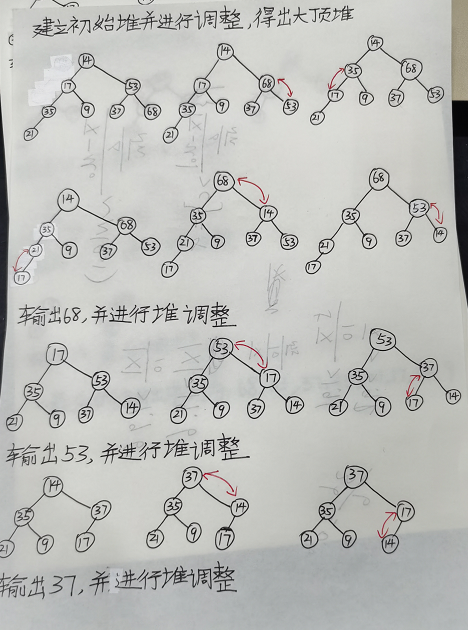 建立初始堆并进行调整,得出大顶堆
14
17 53
35 9 37 68
21
14
17 68
35 9 37 53
21
14
35 68
17 9 37 53
21
14
35 68
21 9 37 53
17
68
35 14
21 9 37 53
17
68
35 53
21 9 37 14
17
输出68,并进行堆调整
17
35 53
21 9 37 14
53
35 17
21 9 37 14
53
35 37
21 9 17 14
输出53,并进行堆调整
14
35 37
21 9 17
37
35 14
21 9 17
37
35 17
21 9 14
输出37,并进行堆调整